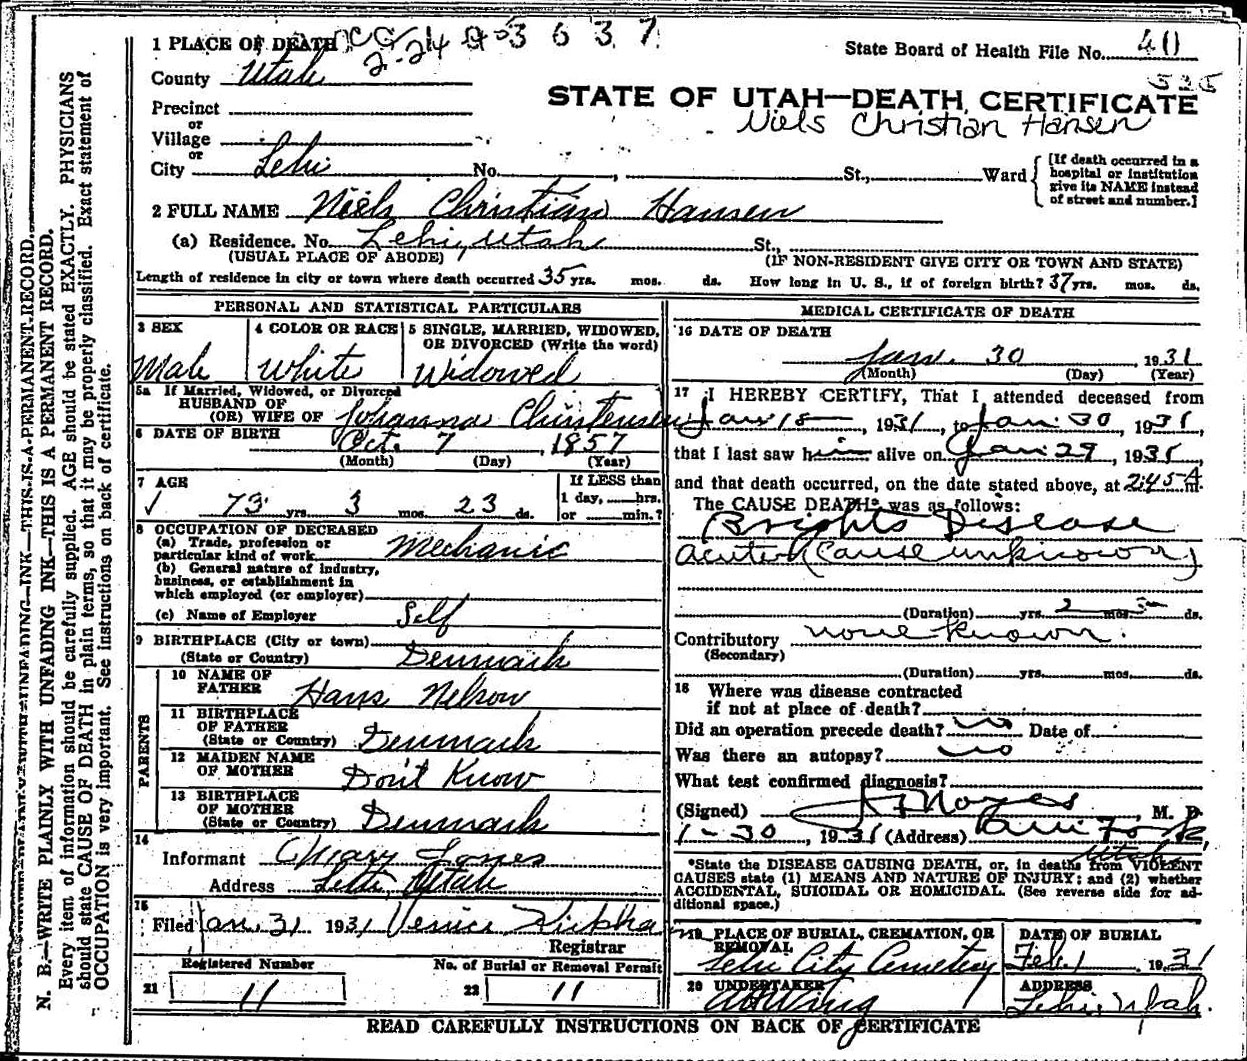 1 PLACE OF DEATH 3 6 3 7
State Board of Health File No. 40
County Utah
525
Precinct
STATE OF UTAH—DEATH CERTIFICATE
or
Village
Niels Christian Hansen
or
City Lehi No. , St., Ward
[If death occurred in a hospital or institution give its NAME instead of street and number.]
2 FULL NAME Niels Christian Hansen
(a) Residence. No. Lehi, Utah St.,
(USUAL PLACE OF ABODE) (IF NON-RESIDENT GIVE CITY OR TOWN AND STATE)
Length of residence in city or town where death occurred 35 yrs. mos. ds. How long in U. S., if of foreign birth? 37 yrs. mos. ds.
PERSONAL AND STATISTICAL PARTICULARS
3 SEX
Male
4 COLOR OR RACE
White
5 SINGLE, MARRIED, WIDOWED, OR DIVORCED (Write the word)
Widowed
5a If Married, Widowed, or Divorced
HUSBAND OF
(OR) WIFE OF Johanna Christensen
6 DATE OF BIRTH Oct. 7, 1857
(Month) (Day) (Year)
7 AGE
73 yrs. 3 mos. 23 ds.
If LESS than
1 day, hrs.
or min.?
8 OCCUPATION OF DECEASED
(a) Trade, profession or
particular kind of work Mechanic
(b) General nature of industry,
business, or establishment in
which employed (or employer)
(c) Name of Employer Self
9 BIRTHPLACE (City or town)
(State or Country) Denmark
PARENTS
10 NAME OF
FATHER Hans Nelson
11 BIRTHPLACE
OF FATHER
(State or Country) Denmark
12 MAIDEN NAME
OF MOTHER Don't Know
13 BIRTHPLACE
OF MOTHER
(State or Country) Denmark
14
Informant Mary Jones
Address Lehi Utah
15
Filed Jan. 31 1931
Registrar
Registered Number
21 11
No. of Burial or Removal Permit
22 11
MEDICAL CERTIFICATE OF DEATH
16 DATE OF DEATH
Jan. 30, 1931
(Month) (Day) (Year)
17 I HEREBY CERTIFY, That I attended deceased from
Jan 18, 1931, to Jan 30, 1931,
that I last saw him alive on Jan 29, 1931,
and that death occurred, on the date stated above, at 2:45 A m.
The CAUSE DEATH* was as follows:
Brights Disease
Acute (Cause unknown)
(Duration) yrs. 2 mos. 5 ds.
Contributory none known.
(Secondary)
(Duration) yrs. mos. ds.
18 Where was disease contracted
if not at place of death?
Did an operation precede death? no Date of
Was there an autopsy? no
What test confirmed diagnosis?
(Signed) Noyes M. D.
1-30, 1931 (Address)
Utah
*State the DISEASE CAUSING DEATH, or, in deaths from VIOLENT
CAUSES state (1) MEANS AND NATURE OF INJURY; and (2) whether
ACCIDENTAL, SUICIDAL OR HOMICIDAL. (See reverse side for ad-
ditional space.)
19 PLACE OF BURIAL, CREMATION, OR
REMOVAL
Lehi City Cemetery
DATE OF BURIAL
Feb. 1, 1931
20 UNDERTAKER
ADDRESS
Lehi, Utah.
READ CAREFULLY INSTRUCTIONS ON BACK OF CERTIFICATE
N. B.—WRITE PLAINLY WITH UNFADING INK—THIS IS A PERMANENT RECORD.
Every item of information should be carefully supplied. AGE should be stated EXACTLY. PHYSICIANS
should state CAUSE OF DEATH in plain terms, so that it may be properly classified. Exact statement of
OCCUPATION is very important. See instructions on back of certificate.